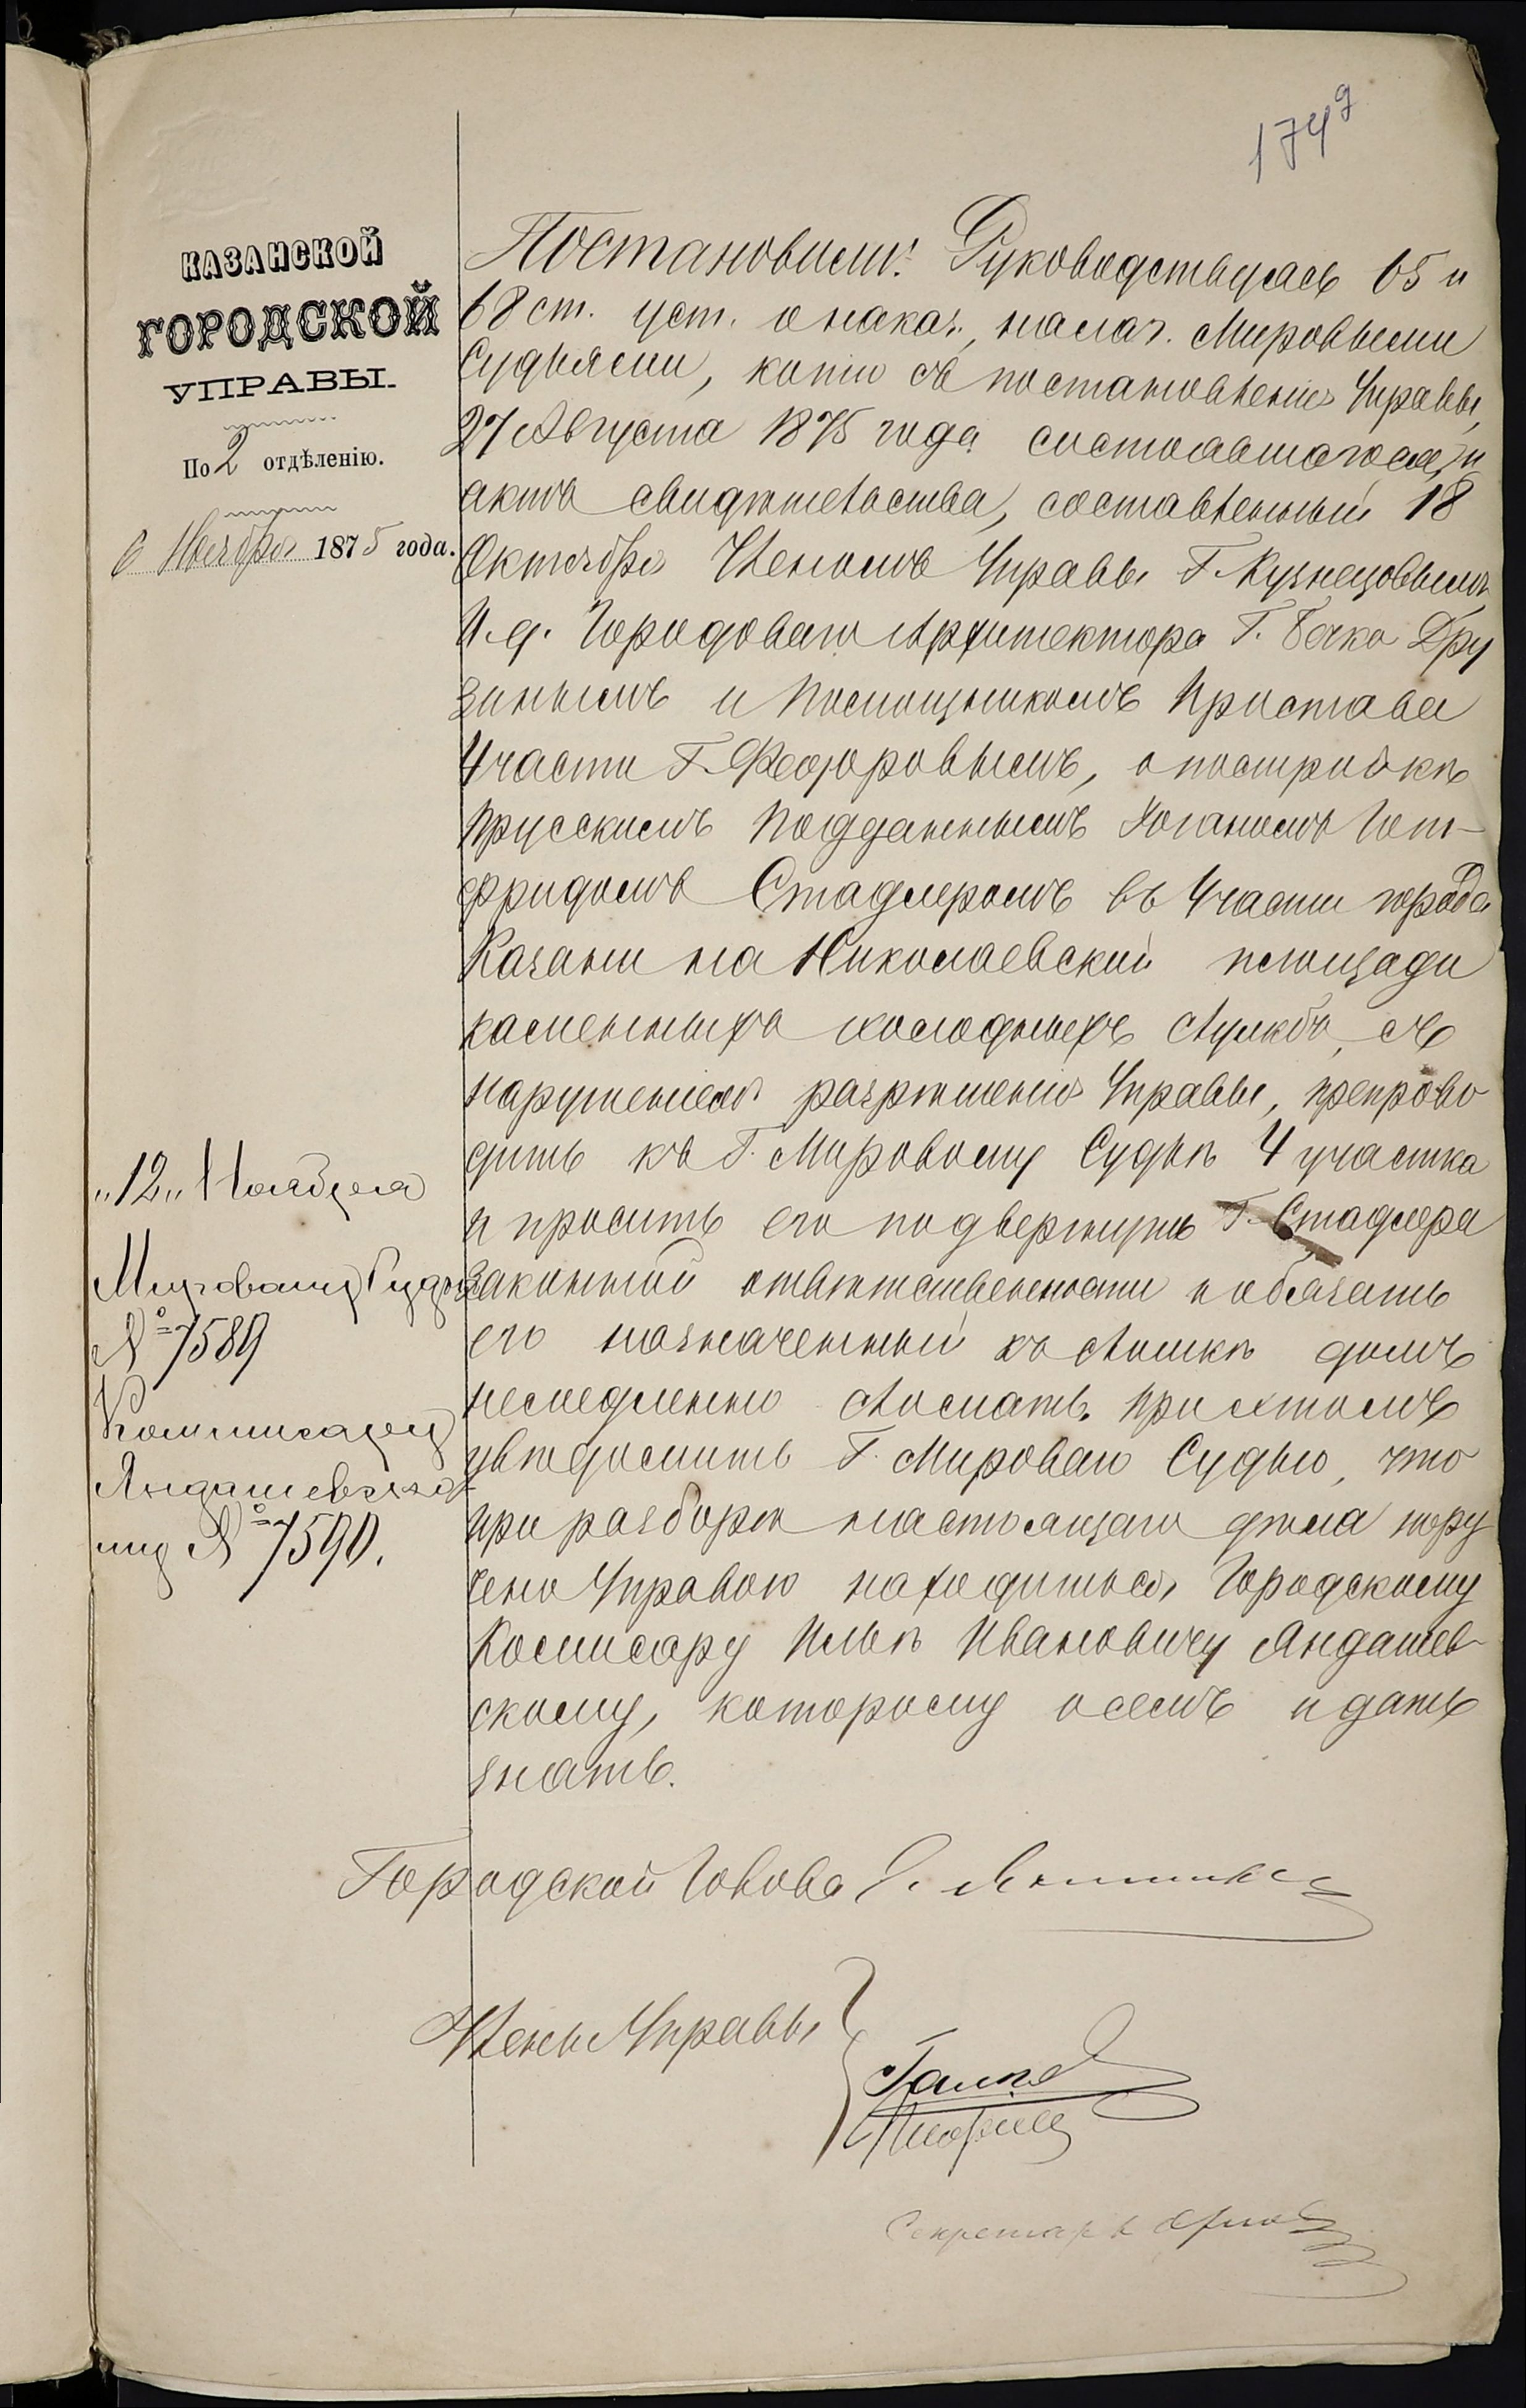 174 9
КАЗАНСКОЙ
ГОРОДСКОЙ
УПРАВЫ.
По 2 отдѣленію.
6 Ноября 1875 года.
Постановили: Руководствуясь 65 и
68 ст. уст. о наказ. налаг. Мировыми
Судьями, копію съ постановленія Управы,
27 Августа 1875 года состоявшагося, и
актъ свидѣтельства, составленный 18
Октября Членомъ Управы Г. Кузнецовымъ
И. д. Городоваго Архитектора Г. Бечко Дру
зинымъ и Помощникомъ Пристава
4 части Г. Федоровымъ, о постройкѣ
Прусскимъ Подданнымъ Іоганомъ Гот-
фридомъ Стадлеромъ въ 4 части города
Казани на Николаевской площади
каменныхъ холодныхъ службъ, съ
нарушеніемъ разрѣшенія Управы, препрово
дить къ Г. Мировому Судьѣ 4 участка
и просить его подвергнуть Г. Стадлера
законной отвѣтственности и обязать
его назначенный къ сломкѣ домъ
немедленно сломать. При этомъ
увѣдомить Г. Мироваго Судью, что
при разборѣ настоящаго дѣла пору
чено Управою находиться Городскому
Комисару Ильѣ Ивановичу Яндашев-
скому, которому о семъ и дать
знать.
"12" Ноября
Мировому Судьѣ
№ 7589
Коммисару
Яндашевско
му № 7590.
Городской Голова
Члены Управы
Секретарь